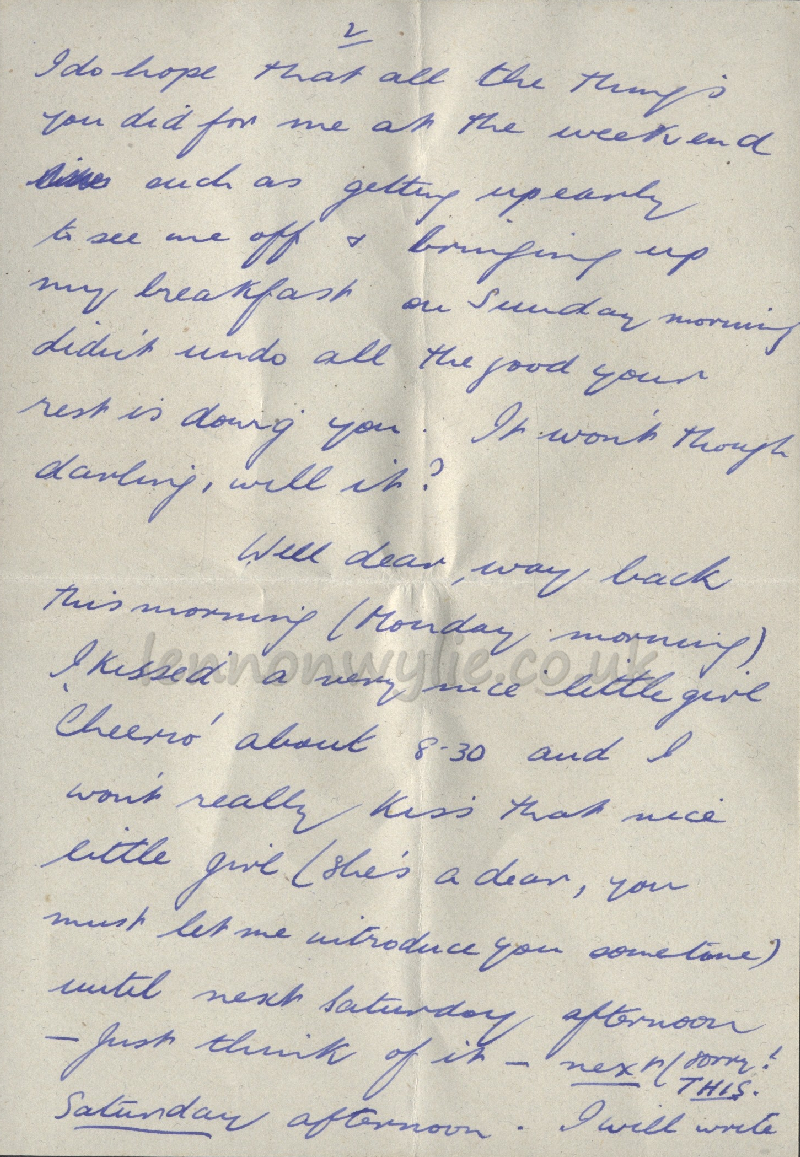 2
I do hope that all the things
you did for me at the weekend
such as getting up early
to see me off & bringing up
my breakfast on Sunday morning
didn't undo all the good your
rest is doing you. It won't though
darling, will it?
Well dear, way back
this morning (Monday morning)
I kissed a very nice little girl
'Cheerio' about 8-30 and I
won't really kiss that nice
little girl (she's a dear, you
must let me introduce you sometime)
until next Saturday afternoon
- Just think of it - next (sorry!
THIS.
Saturday afternoon. I will write
lennonwylie.co.uk